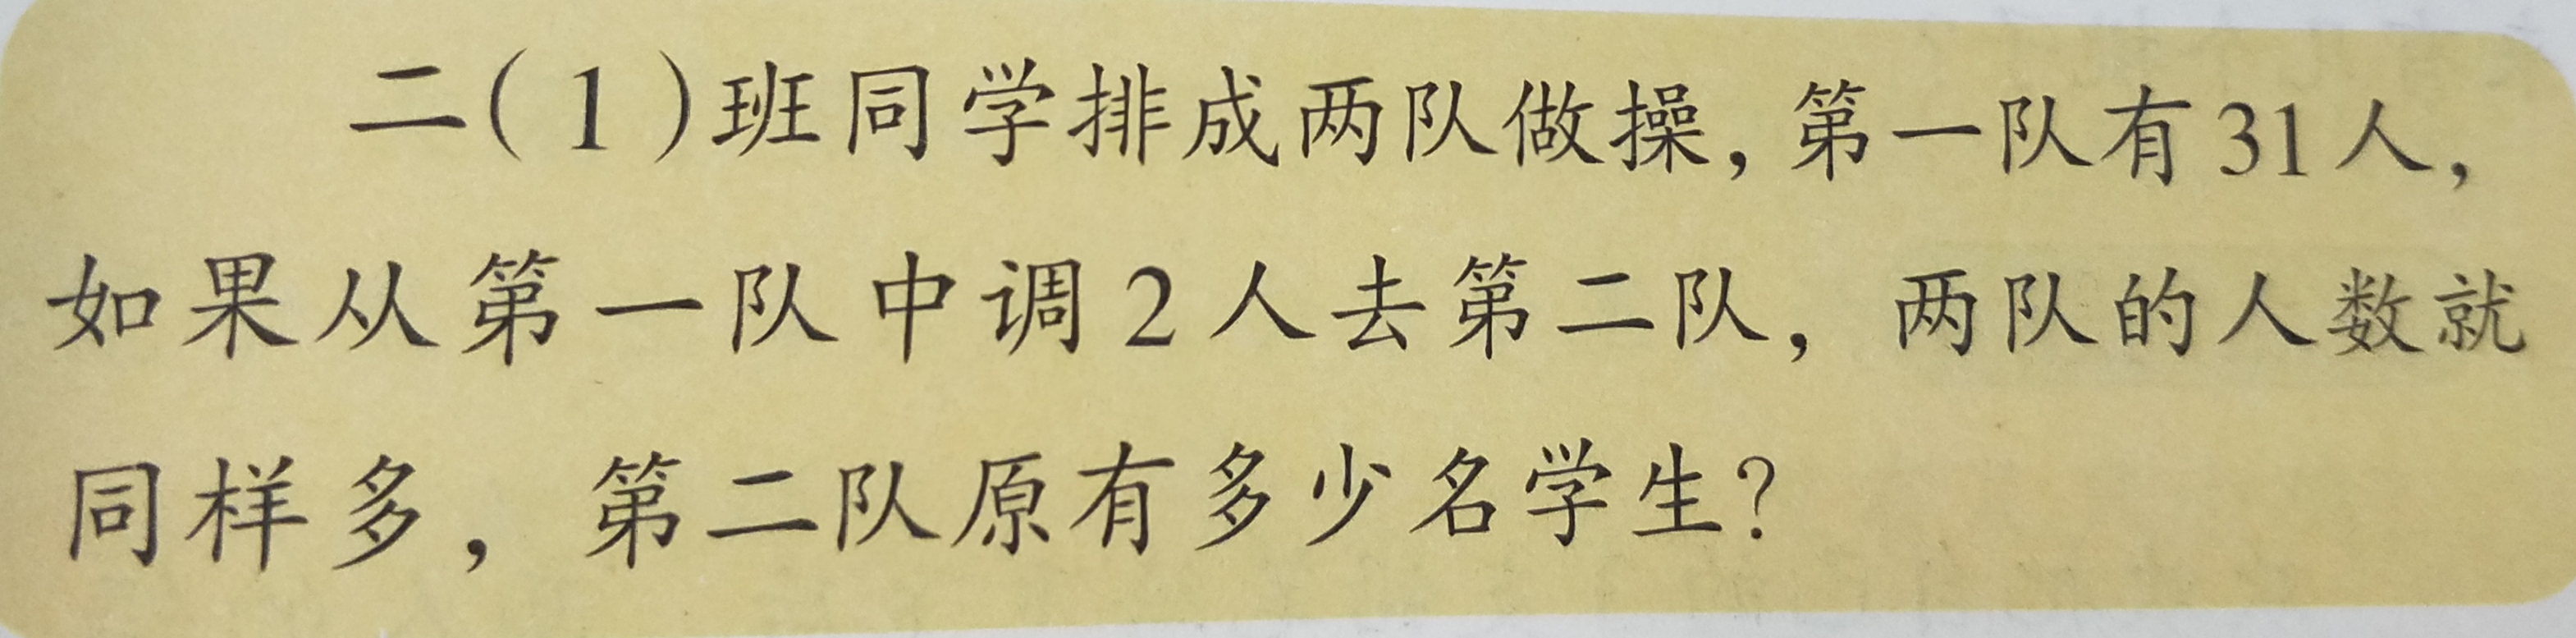 二(1)班同学排成两队做操,第一队有31人,
如果从第一队中调2人去第二队,两队的人数就
同样多,第二队原有多少名学生?